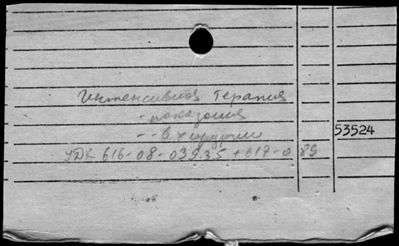 Интенсивная терапия
- показания
- - в хирургии
53524
УДК 616-08-039.35 + 617-0 89